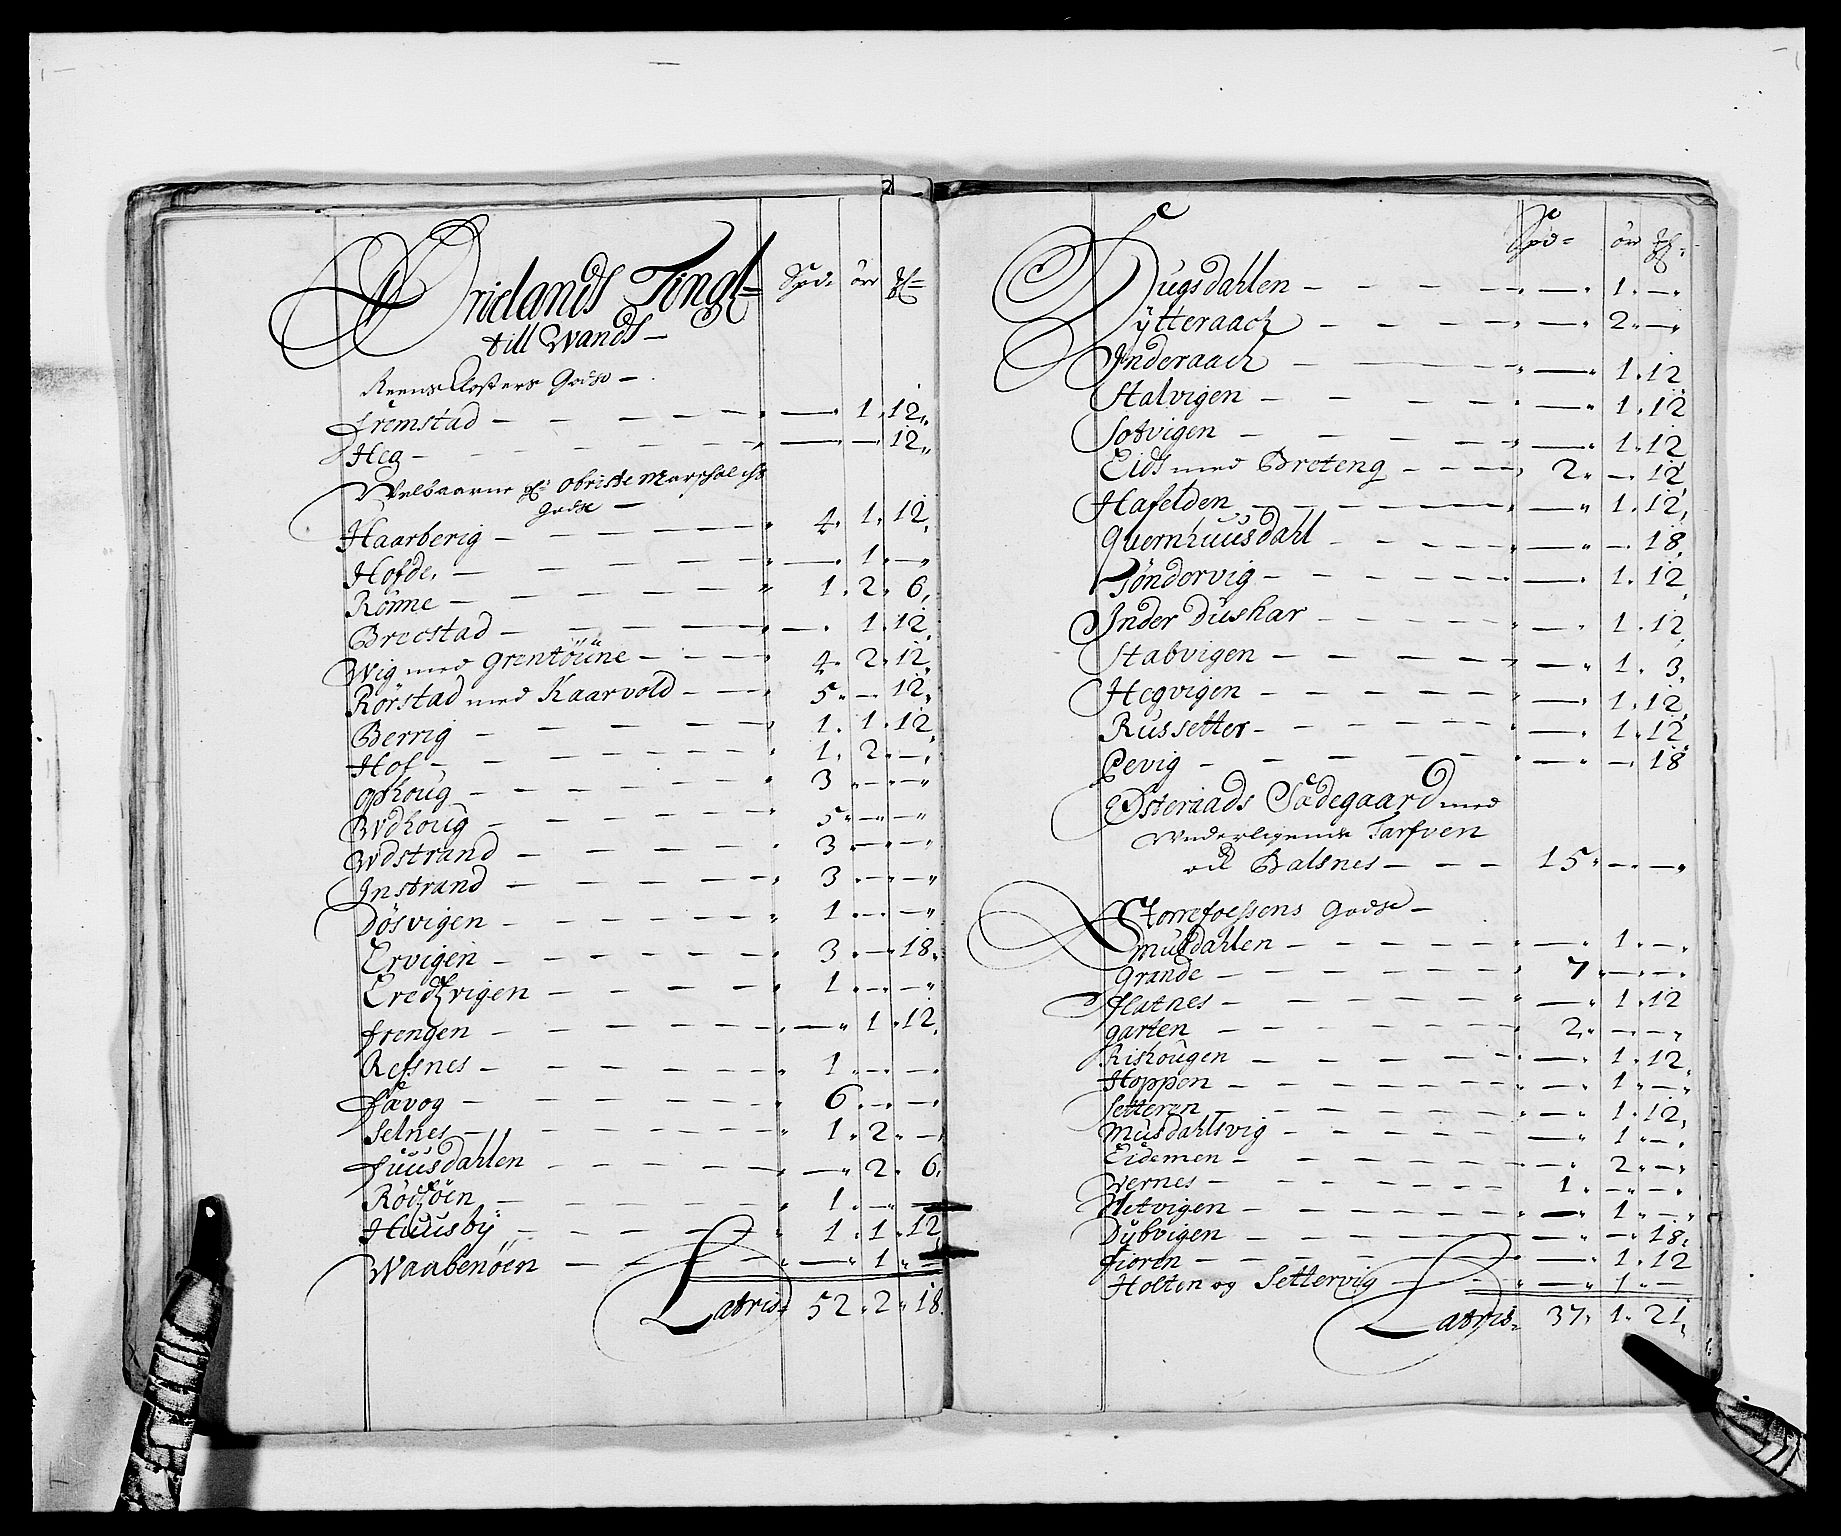 Ørielands Tingl= Spd: ör ₰=
till Wands —
Reens Closters Godse —
Fremstad — — — — — " — " 1 " 12 "
Heg — — — — — — " — " — 12 "
Welbaarne Hr: Obriste Marschalchs
Godse —
Haarberig — — — — " 4 " 1 " 12 "
Hofde. — — — — — " — " 1 " — "
Rönne — — — — — " 1 " 2 " 6 "
Brecstad — — — — " — " 1 " 12 "
Wig med Grentöüne — — — " 4 " 2 " 12 "
Rörstad med Kaarvold — — " 5 " — " 12 "
Berrig — — — — — " 1 " 1 " 12 "
Hof — — — — — " 1 " 2 " — "
Ophoug — — — — " 3 " — " — "
Wdhoug — — — — " 5 " — " — "
Wdstrand — — — — " 3 " — " — "
Instrand — — — — " 3 " — " — "
Dösvigen — — — — " 1 " — " — "
Ervigen — — — — " 3 " — " 18 "
Eredzvigen — — — — " 1 " — " — "
Frengen — — — — " — " 1 " 12 "
Refsnes — — — — " 1 " — " — "
Fævog — — — — " 6 " — " — "
Selnes — — — — " 1 " 2 " — "
Fuusdahlen — — — — " — " 2 " 6 "
Rödzöen — — — — " 1 " — " —
Huusbÿ — — — — " 1 " 1 " 12
Waabenöen — — — — " — " 1 " —
Latris: 52 " 2 " 18
Spd= ör ₰=
Dugsdahlen — — — — " — " 1 " — "
Ytteraach — — — — " — " 2 " — "
Inderaach — — — " — " 1 " 12
Stalvigen — — — — " — " 1 " 12
Sotvigen — — — — " — " 1 " 12
Eids med Breteng — — — " 2 " — " 12
Hafelden — — — — " — " 1 " 12 "
Quernhuusdahl — — — — " — " — " 18 "
Söndervig — — — — " — " 1 " 12
Inder Dushar — — — — " — " 1 " 12
Stabvigen — — — — " — " 1 " 3 "
Hegvigen — — — — " — " 1 " 12
Russetter — — — — " — " 1 " 12
Pevig — — — — " — " — " 18
Østeraads Sædegaard med
Wnderligende Tarfven
och Balsnes — — — 15 " — " — "
Storrefoessens Godse —
Musdahlen — — — — " — " 1 " — "
Grande — — — — " 7 " — " — "
Flatnes — — — — " — " 1 " 12
Garten — — — — 2 " — " — "
Rishougen — — — — " — " 1 " 12 "
Hoppen — — — — " — " 1 " — "
Setteren — — — — " — " 1 " 12 "
Musdahlsvig — — — — — " 1 " — "
Eidemen — — — — — " 2 " — "
Wernes — — — — 1 " — " — "
Netvigen — — — — " — " 1 " — "
Dybvigen — — — — " — " — " 18 "
Fioren — — — — " — " 1 " 12
Holten og Settervig — — " — " 1 " —
Latris: 37 " 1 " 21 "